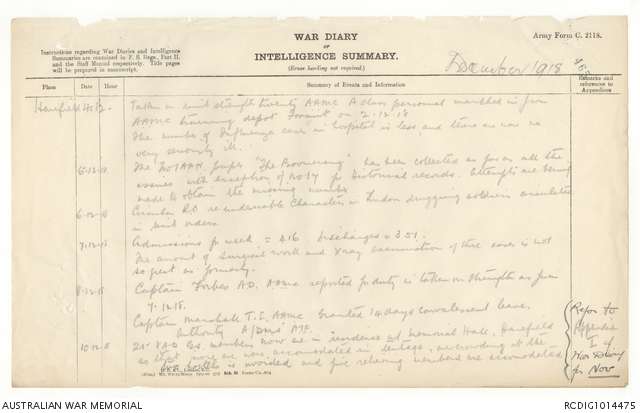 WAR DIARY
OR
INTELLIGENCE SUMMARY.
(Erase heading not required.)
Army Form C. 2118.
Instructions regarding War Diaries and Intelligence
Summaries are contained in F. S. Regs., Part II.
and the Staff Manual respectively. Title pages
will be prepared in manuscript.
December 1918
Place
Date
Hour
Summary of Events and Information
Remarks and
references to
Appendices
Harefield
Taken on unit strength twenty AAMC A class personnel marched in from
AAMC training depot on 2.12.18
The number of Influenza cases in hospital is less and there are now no
very seriously ill.
5-12-18
The No 1 AAH "The Boomerang" has been collected as far as all the
issues with exception of No 14 for historical records. Attempts are being
made to obtain the missing number
6-12-18
Circular re undesirable characters in London drugging soldiers circulated
in unit orders
7-12-18
Admissions for week = 416. Discharges = 351.
The amount of surgical work and X-ray examination of these cases is not
so great as formerly.
8-12-18
Captain Forbes A.D. AAMC reported for duty is taken on strength as from
7.12.18.
Captain Marshall T.E. AAMC granted 14 days convalescent leave.
Authority A/DMS AIF.
10-12-18
VAD members now are in residence at Memorial Hall, Harefield
so that more are now accomodated in
is avoided and five members are accomodated
Refer to
Appendix
I of
War Diary
for Nov
AUSTRALIAN WAR MEMORIAL
RCDIG1014475